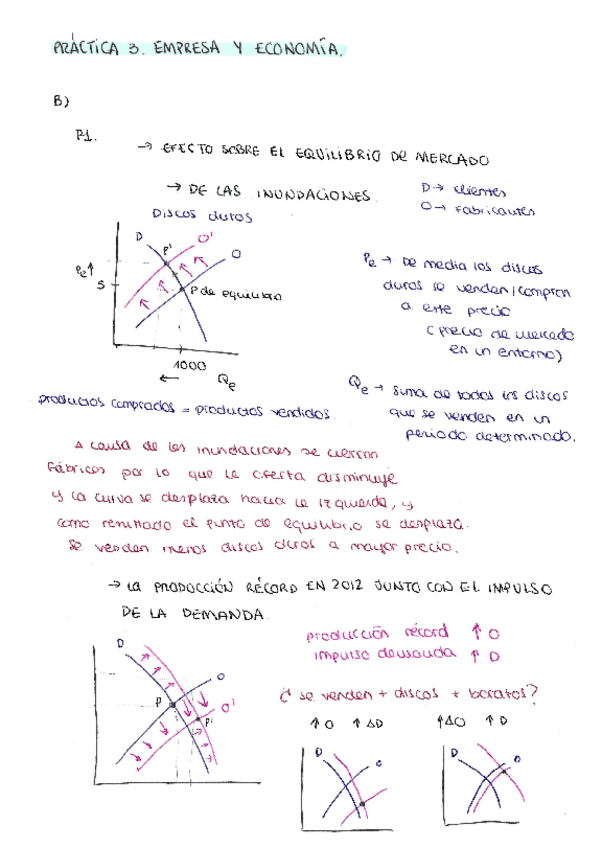 PRÁCTICA 3. EMPRESA Y ECONOMÍA.
B)
P1.
→ EFECTO SOBRE EL EQUILIBRIO DE MERCADO
→ DE LAS INUNDACIONES.
D → clientes
O → Fabricantes
Discos duros
D
P'
O'
O
Pe↑
5
P de equilibrio
1000
←
Qe
Pe → De media los discos
duros se venden/compran
a este precio
(precio de mercado
en un entorno)
Qe → Suma de todos los discos
que se venden en un
periodo determinado.
productos comprados = productos vendidos.
A causa de las inundaciones se cierran
fábricas por lo que la oferta disminuye
y la curva se desplaza hacia la izquierda, y
como resultado el punto de equilibrio se desplaza.
Se venden menos discos duros a mayor precio.
→ LA PRODUCCIÓN RÉCORD EN 2012 JUNTO CON EL IMPULSO
DE LA DEMANDA.
producción récord ↑ O
impulso demanda ↑ D
¿ se venden + discos + baratos?
D
O
P
O'
P'
↑ O ↑ ΔD
↑ΔO ↑ D
D
O
D
O